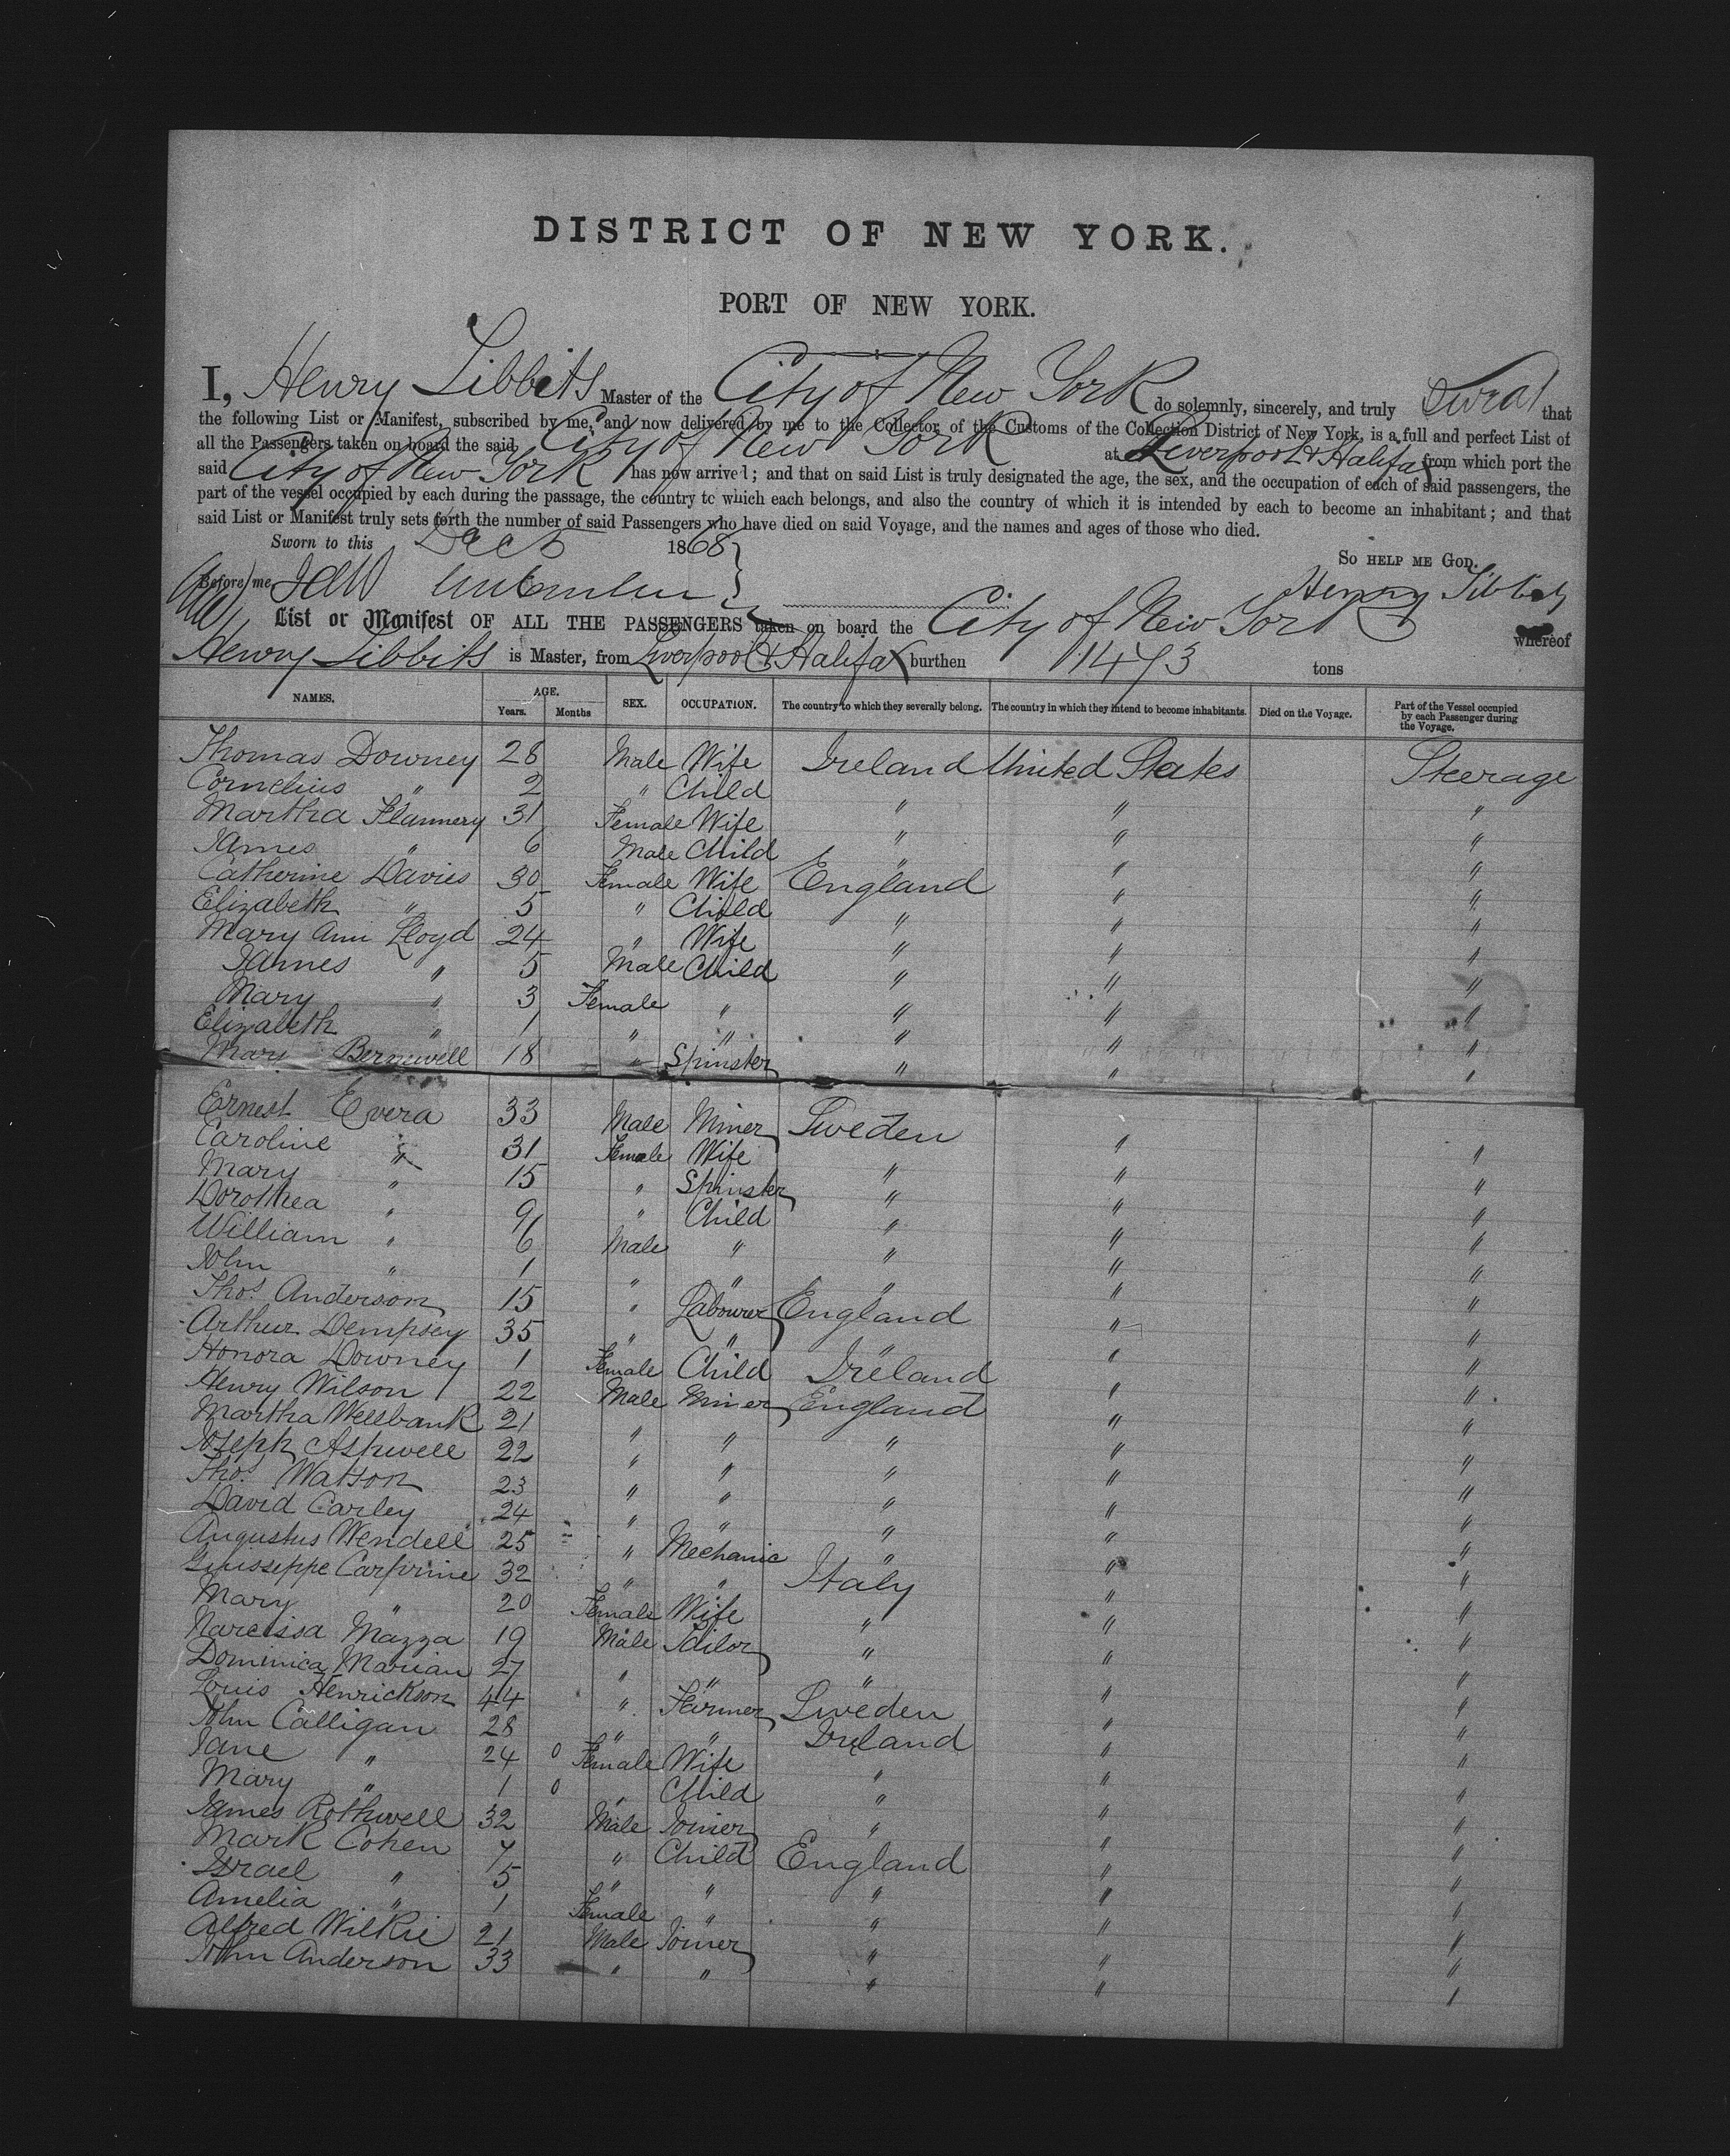 DISTRICT OF NEW YORK.
PORT OF NEW YORK.
I, Henry Tibbits Master of the City of New York do solemnly, sincerely, and truly Swear that
the following List or Manifest, subscribed by me, and now delivered by me to the Collector of the Customs of the Collection District of New York, is a full and perfect List of
all the Passengers taken on board the said City of New York at Liverpool & Halifax from which port the
said City of New York has now arrived; and that on said List is truly designated the age, the sex, and the occupation of each of said passengers, the
part of the vessel occupied by each during the passage, the country to which each belongs, and also the country of which it is intended by each to become an inhabitant; and that
said List or Manifest truly sets forth the number of said Passengers who have died on said Voyage, and the names and ages of those who died.
Sworn to this Dec 5 1868
So help me God.
Before me
Henry Tibbits
List or Manifest OF ALL THE PASSENGERS taken on board the City of New York whereof
Henry Tibbits is Master, from Liverpool & Halifax burthen 1473 tons
NAMES. AGE. Years. Months SEX. OCCUPATION. The country to which they severally belong. The country in which they intend to become inhabitants. Died on the Voyage. Part of the Vessel occupied by each Passenger during the Voyage.
Thomas Downey 28 Male Wife Ireland United States Steerage
Cornelius " 2 " Child " " "
Martha Flannery 31 Female Wife " " "
James " 6 Male Child " " "
Catherine Davies 30 Female Wife England " "
Elizabeth " 5 " Child " " "
Mary Ann Lloyd 24 " Wife " " "
James " 5 Male Child " " "
Mary " 3 Female " " " "
Elizabeth " 1 " " " " "
Mary 18 " Spinster " " "
Ernest Evera 33 Male Miner Sweden " "
Caroline " 31 Female Wife " " "
Mary " 15 " Spinster " " "
Dorothea " 9 " Child " " "
William " 6 Male " " " "
John " 1 " " " " "
Thos. Anderson 15 " Labourer England " "
Arthur Dempsey 35 " " " " "
Honora Downey 1 Female Child Ireland " "
Henry Wilson 22 Male Miner England " "
Martha Wellbank 21 " " " " "
Joseph Ashwell 22 " " " " "
Thos. Watson 23 " " " " "
David Carley 24 " " " " "
Augustus Wendell 25 " Mechanic " " "
Giusseppe Carpvine 32 " " Italy " "
Mary " 20 Female Wife " " "
Narcissa Mazza 19 Male Tailor " " "
Dominica Marian 27 " " " " "
Louis Henrickson 44 " Farmer Sweden " "
John Calligan 28 " " Ireland " "
Jane " 24 0 Female Wife " " "
Mary " 1 0 " Child " " "
James Rothwell 32 Male Joiner " " "
Mark Cohen 7 " Child England " "
Israel " 5 " " " " "
Amelia " 1 Female " " " "
Alfred Wilkie 21 Male Joiner " " "
John Anderson 33 " " " " "